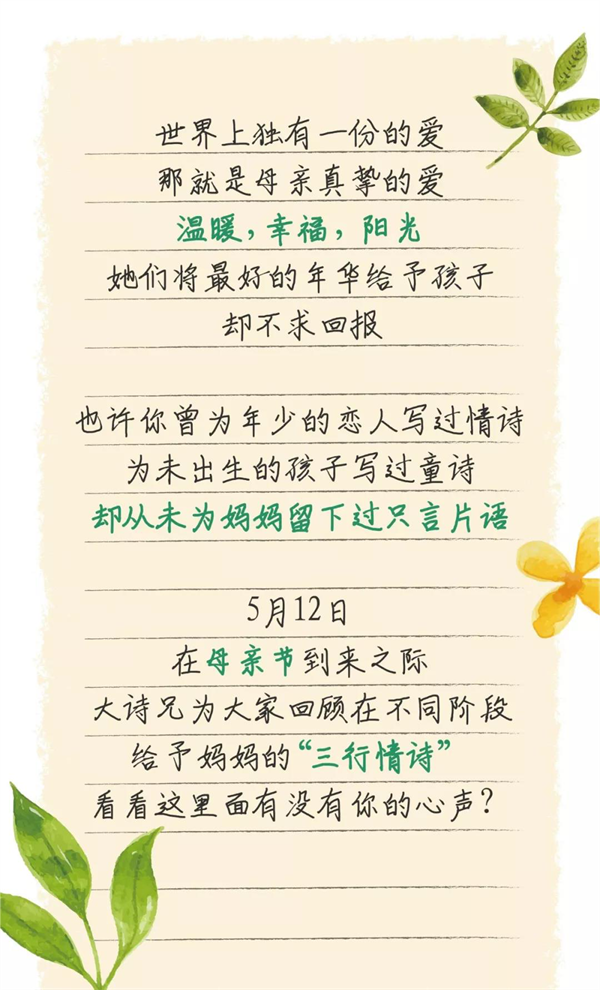 世界上独有一份的爱
那就是母亲真挚的爱
温暖，幸福，阳光
她们将最好的年华给予孩子
却不求回报
也许你曾为年少的恋人写过情诗
为未出生的孩子写过童诗
却从未为妈妈留下过只言片语
5月12日
在母亲节到来之际
大诗兄为大家回顾在不同阶段
给予妈妈的“三行情诗”
看看这里面有没有你的心声？